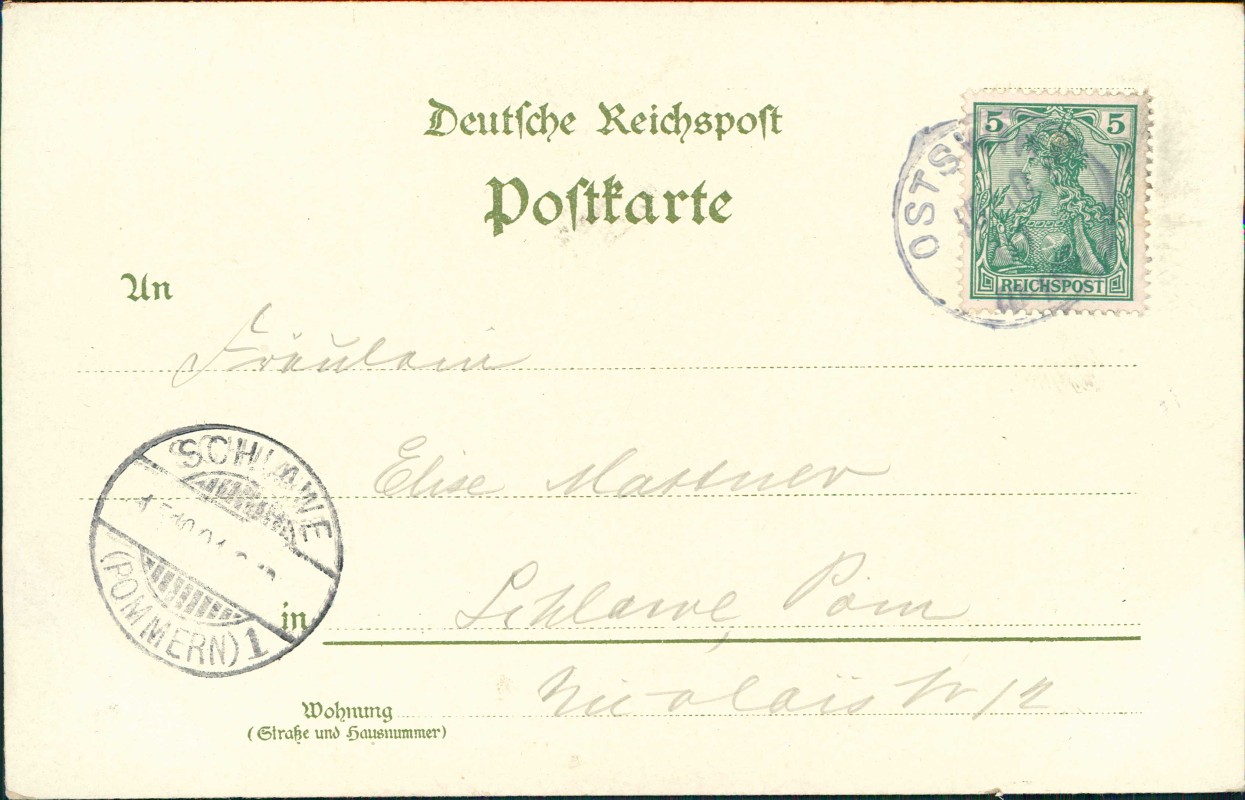 Deutsche Reichspost
Postkarte
5 5
REICHSPOST
OSTS
An
Fräulein
Elise Mattner
SCHLAWE
(POMMERN) 1
in Schlawe, Pom
Nicolaistr 12
Wohnung
(Straße und Hausnummer)